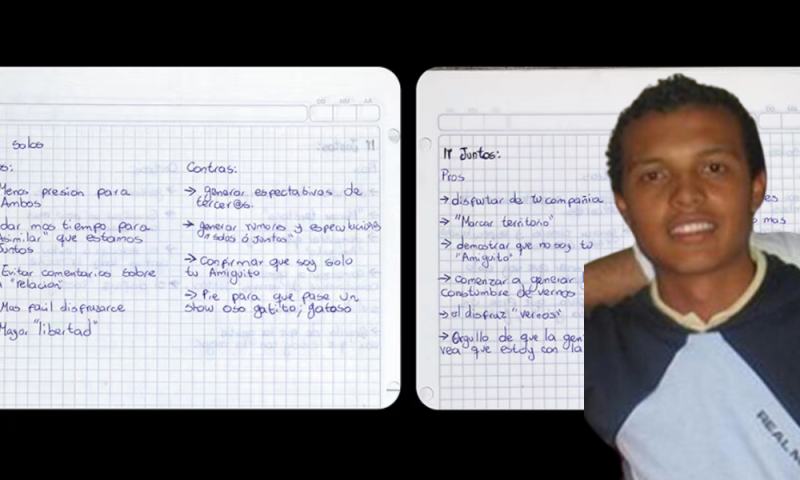 solos
Contras:
Menos presion para
Ambos
→ generar espectativas de
tercer@s.
dar mas tiempo para
"asimilar" que estamos
Juntos
→ generar rumores y especulaciones
"solos ó Juntos"
→ Confirmar que soy solo
tu Amiguito
Evitar comentarios sobre
"relacion"
→ Pie para que pase un
show oso gatito, gatoso
Mas facil disfrazarce
Mayor "libertad"
Ir Juntos:
Pros
→ disfrutar de tu compañia
→ "Marcar territorio"
→ demostrar que no soy tu
"Amiguito"
→ comenzar a generar
constumbre de vernos
→ el disfraz "vernos"
→ Orgullo de que la gen
vea que estoy con la
mas
REAL M